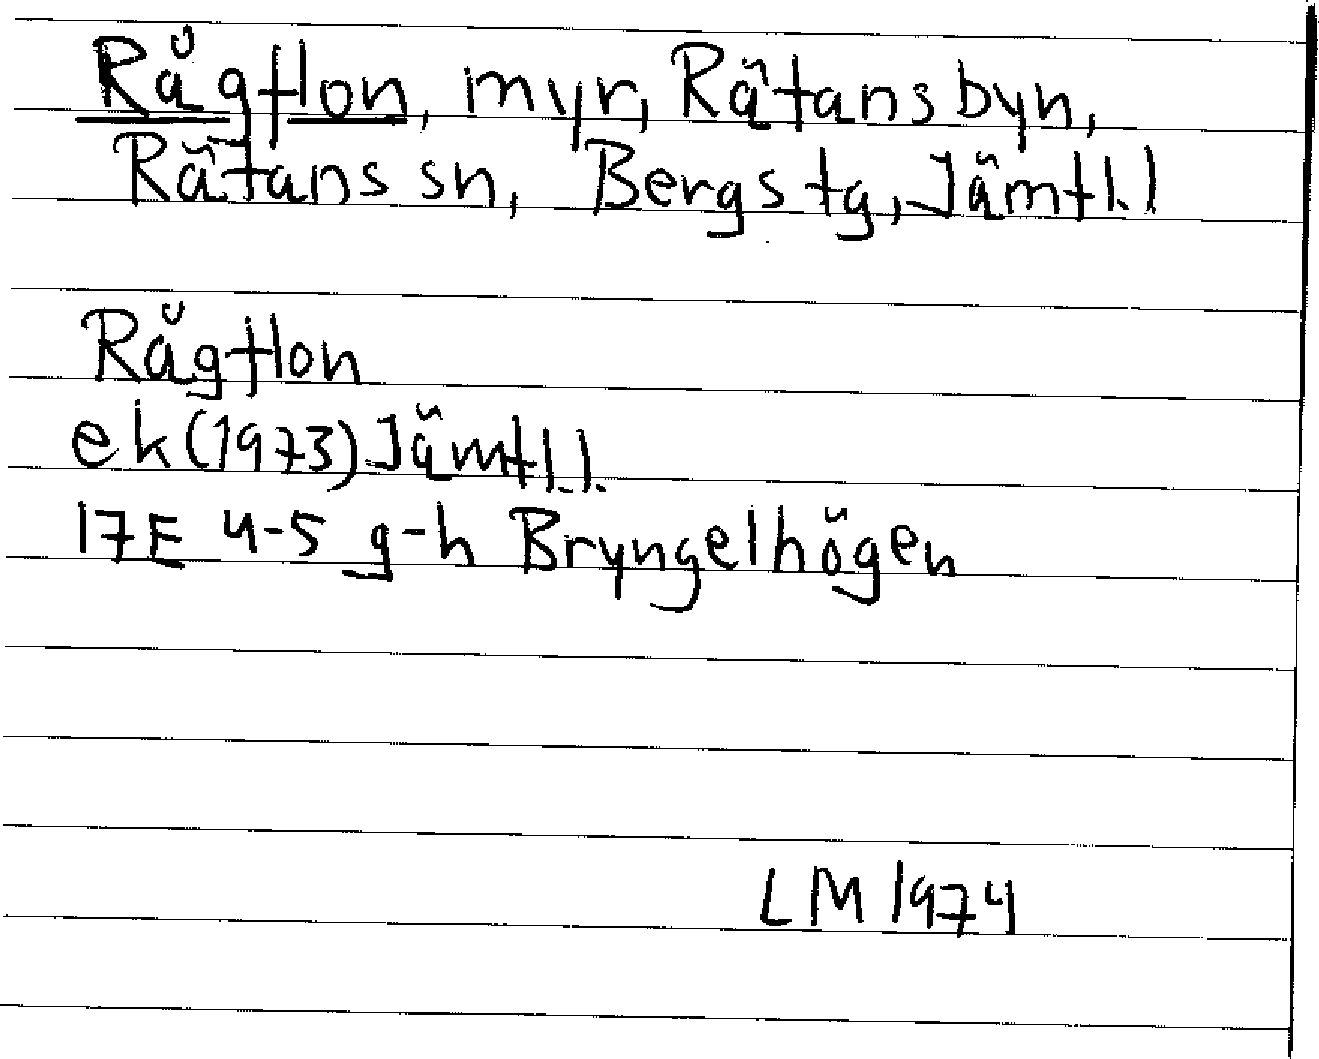 Rågflon, myr, Rätansbyn,
Rätans sn, Bergs tg, Jämtl.l
Rågflon
ek(1973)Jämtl.l.
17E 4-5 g-h Bryngelhögen
LM 1974